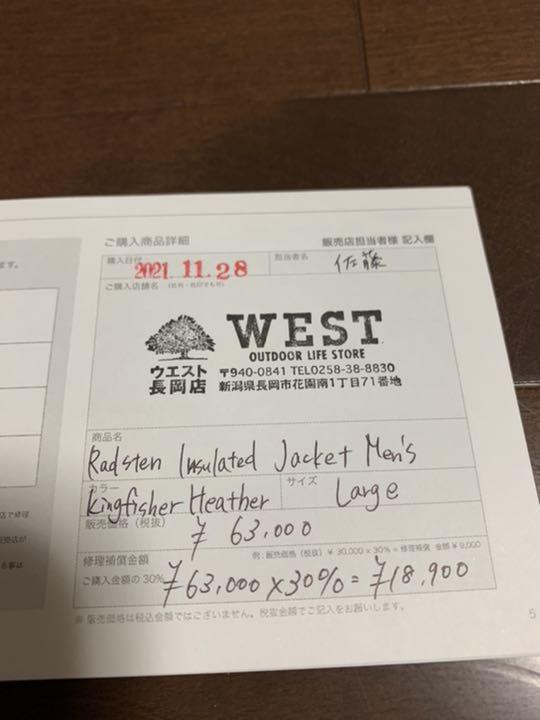 ます。
ご購入商品詳細 販売店担当者様 記入欄
購入日付 2021.11.28 担当者名 佐藤
ご購入店舗名 (社判・社印でも可)
WEST
OUTDOOR LIFE STORE
ウエスト 〒940-0841 TEL0258-38-8830
長岡店 新潟県長岡市花園南1丁目71番地
商品名
Radsten Insulated Jacket Men's
カラー サイズ
Kingfisher Heather Large
販売価格（税抜）
¥ 63,000
修理補償金額 例：販売価格（税抜）¥ 30,000 x 30% = 修理補償 金額 ¥ 9,000
ご購入金額の30% ¥63,000×30%=¥18,900
※ 販売価格は税込金額ではございません。税抜金額でご記入をお願いします。
店で修理
5